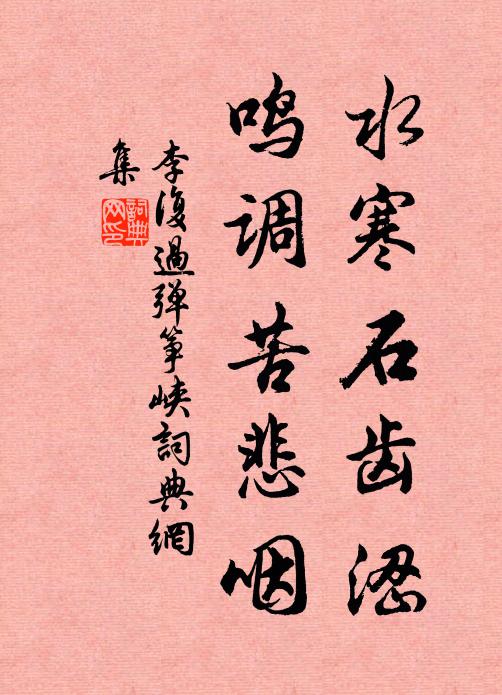 水寒石齿涩
鸣调苦悲咽
李復過弹筝峡詞典網
集
詞典
网印